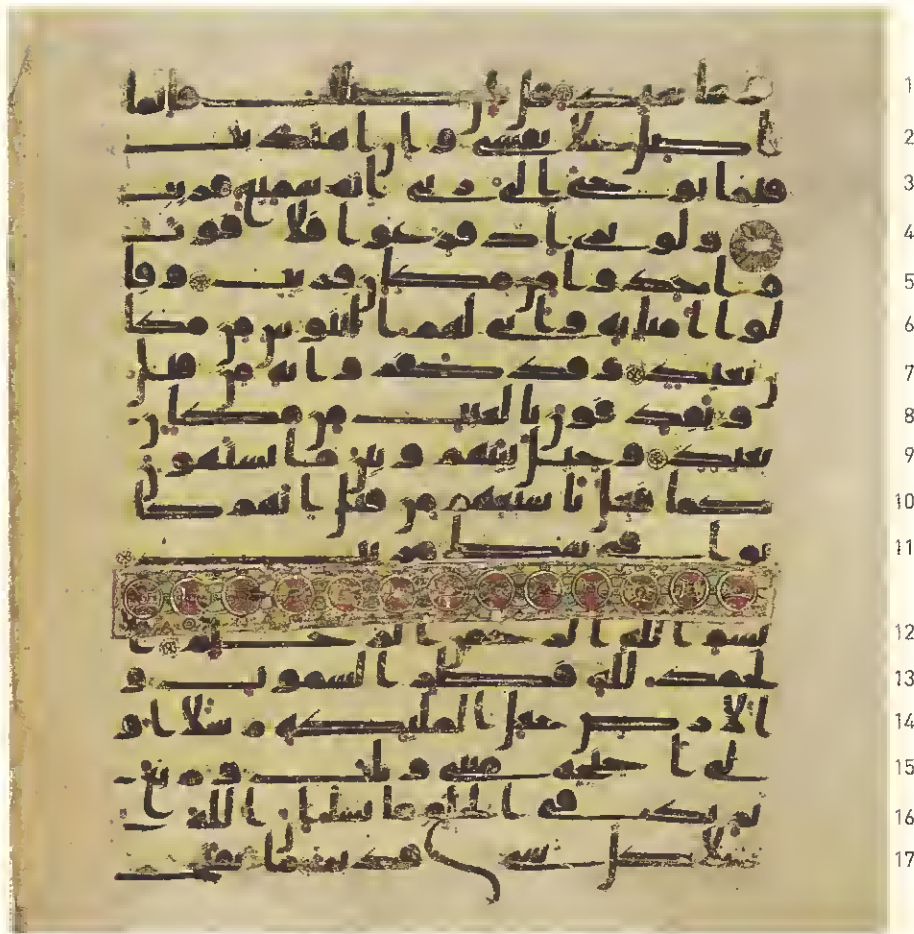 وما يعيد قل ان ضللت فانما 1
اضل على نفسي وان اهتديت 2
فبما يوحي الي ربي انه سميع قريب 3
ولو ترى اذ فزعوا فلا فوت 4
واخذوا من مكان قريب وقا 5
لوا امنا به وانى لهم التناوش من مكا 6
ن بعيد وقد كفروا به من قبل 7
ويقذفون بالغيب من مكان 8
بعيد وحيل بينهم وبين ما يشتهون 9
كما فعل باشيعهم من قبل انهم كا 10
نوا في شك مريب 11
بسم الله الرحمن الرحيم ا 12
لحمد لله فطر السموت و 13
الارض جعل الملئكة رسلا او 14
لي اجنحة مثنى وثلث وربع 15
يزيد في الخلق ما يشا ان الله ع 16
لى كل شي قدير ما يفتح 17